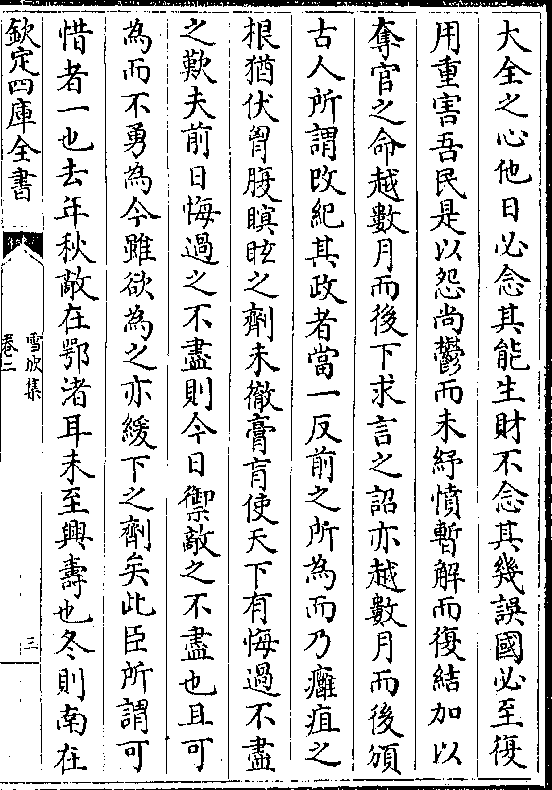 大全之心他日必念其能生財不念其幾誤國必至復
用重害吾民是以怨尚鬱而未紓憤暫解而復結加以
奪官之命越數月而後下求言之詔亦越數月而後頒
古人所謂改紀其政者當一反前之所為而乃癰疽之
根猶伏胷腹瞑眩之劑未徹膏肓使天下有悔過不盡
之歎夫前日悔過之不盡則今日禦敵之不盡也且可
為而不勇為今雖欲為之亦緩下之劑矣此臣所謂可
惜者一也去年秋敵在鄂渚耳未至興壽也冬則南在
欽定四庫全書
雪坡集
卷二
三